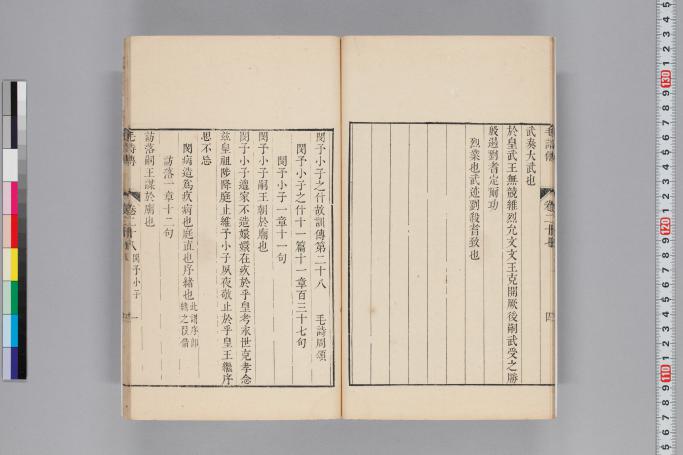 武奏大武也
於皇武王無競維烈允文文王克開厥後嗣武受之勝
殷遏劉耆定爾功
烈業也武迹劉殺耆致也
閔予小子之什故訓傳第二十八 毛詩周頌
閔予小子之什十一篇十一章百三十七句
閔予小子一章十一句
閔予小子嗣王朝於廟也
閔予小子遭家不造嬛嬛在疚於乎皇考永世克孝念
兹皇祖陟降庭止維予小子夙夜敬止於乎皇王繼序
思不忘
閔病造爲疚病也庭直也序緒也
訪落一章十二句
訪落嗣王謀於廟也
毛詩傳 卷二十八 閔予小子 一